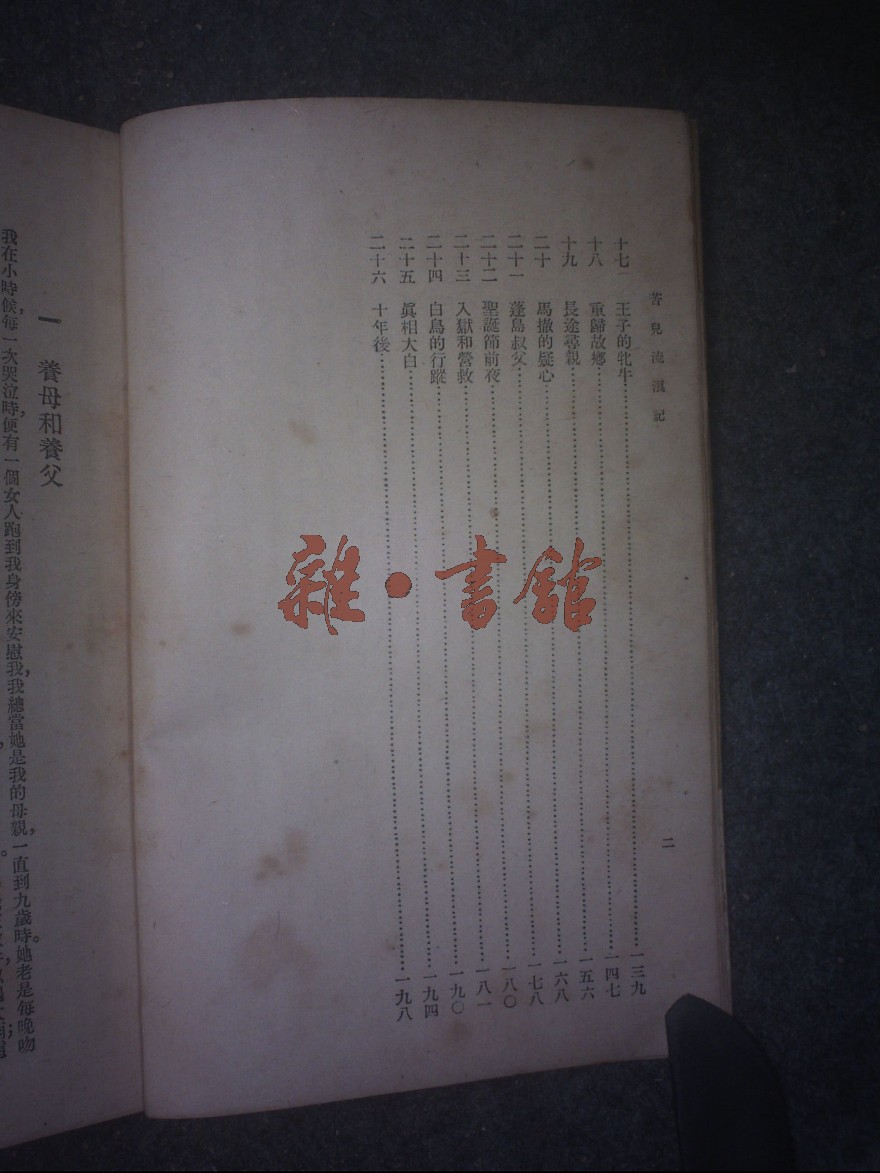 苦兒流浪記
十七 王子的牝牛……一三九
十八 重歸故鄉……一四七
十九 長途尋親……一五六
二十 馬撒的疑心……一六八
二十一 蓬島叔父……一七八
二十二 聖誕節前夜……一八〇
二十三 入獄和營救……一八一
二十四 白鳥的行蹤……一九〇
二十五 眞相大白……一九四
二十六 十年後……一九八
二
雜·書館
一 養母和養父
我在小時候，每一次哭泣時，便有一個女人跑到我身傍來安慰我，我總當她是我的母親，
一直到九歲時。她老是每晚吻